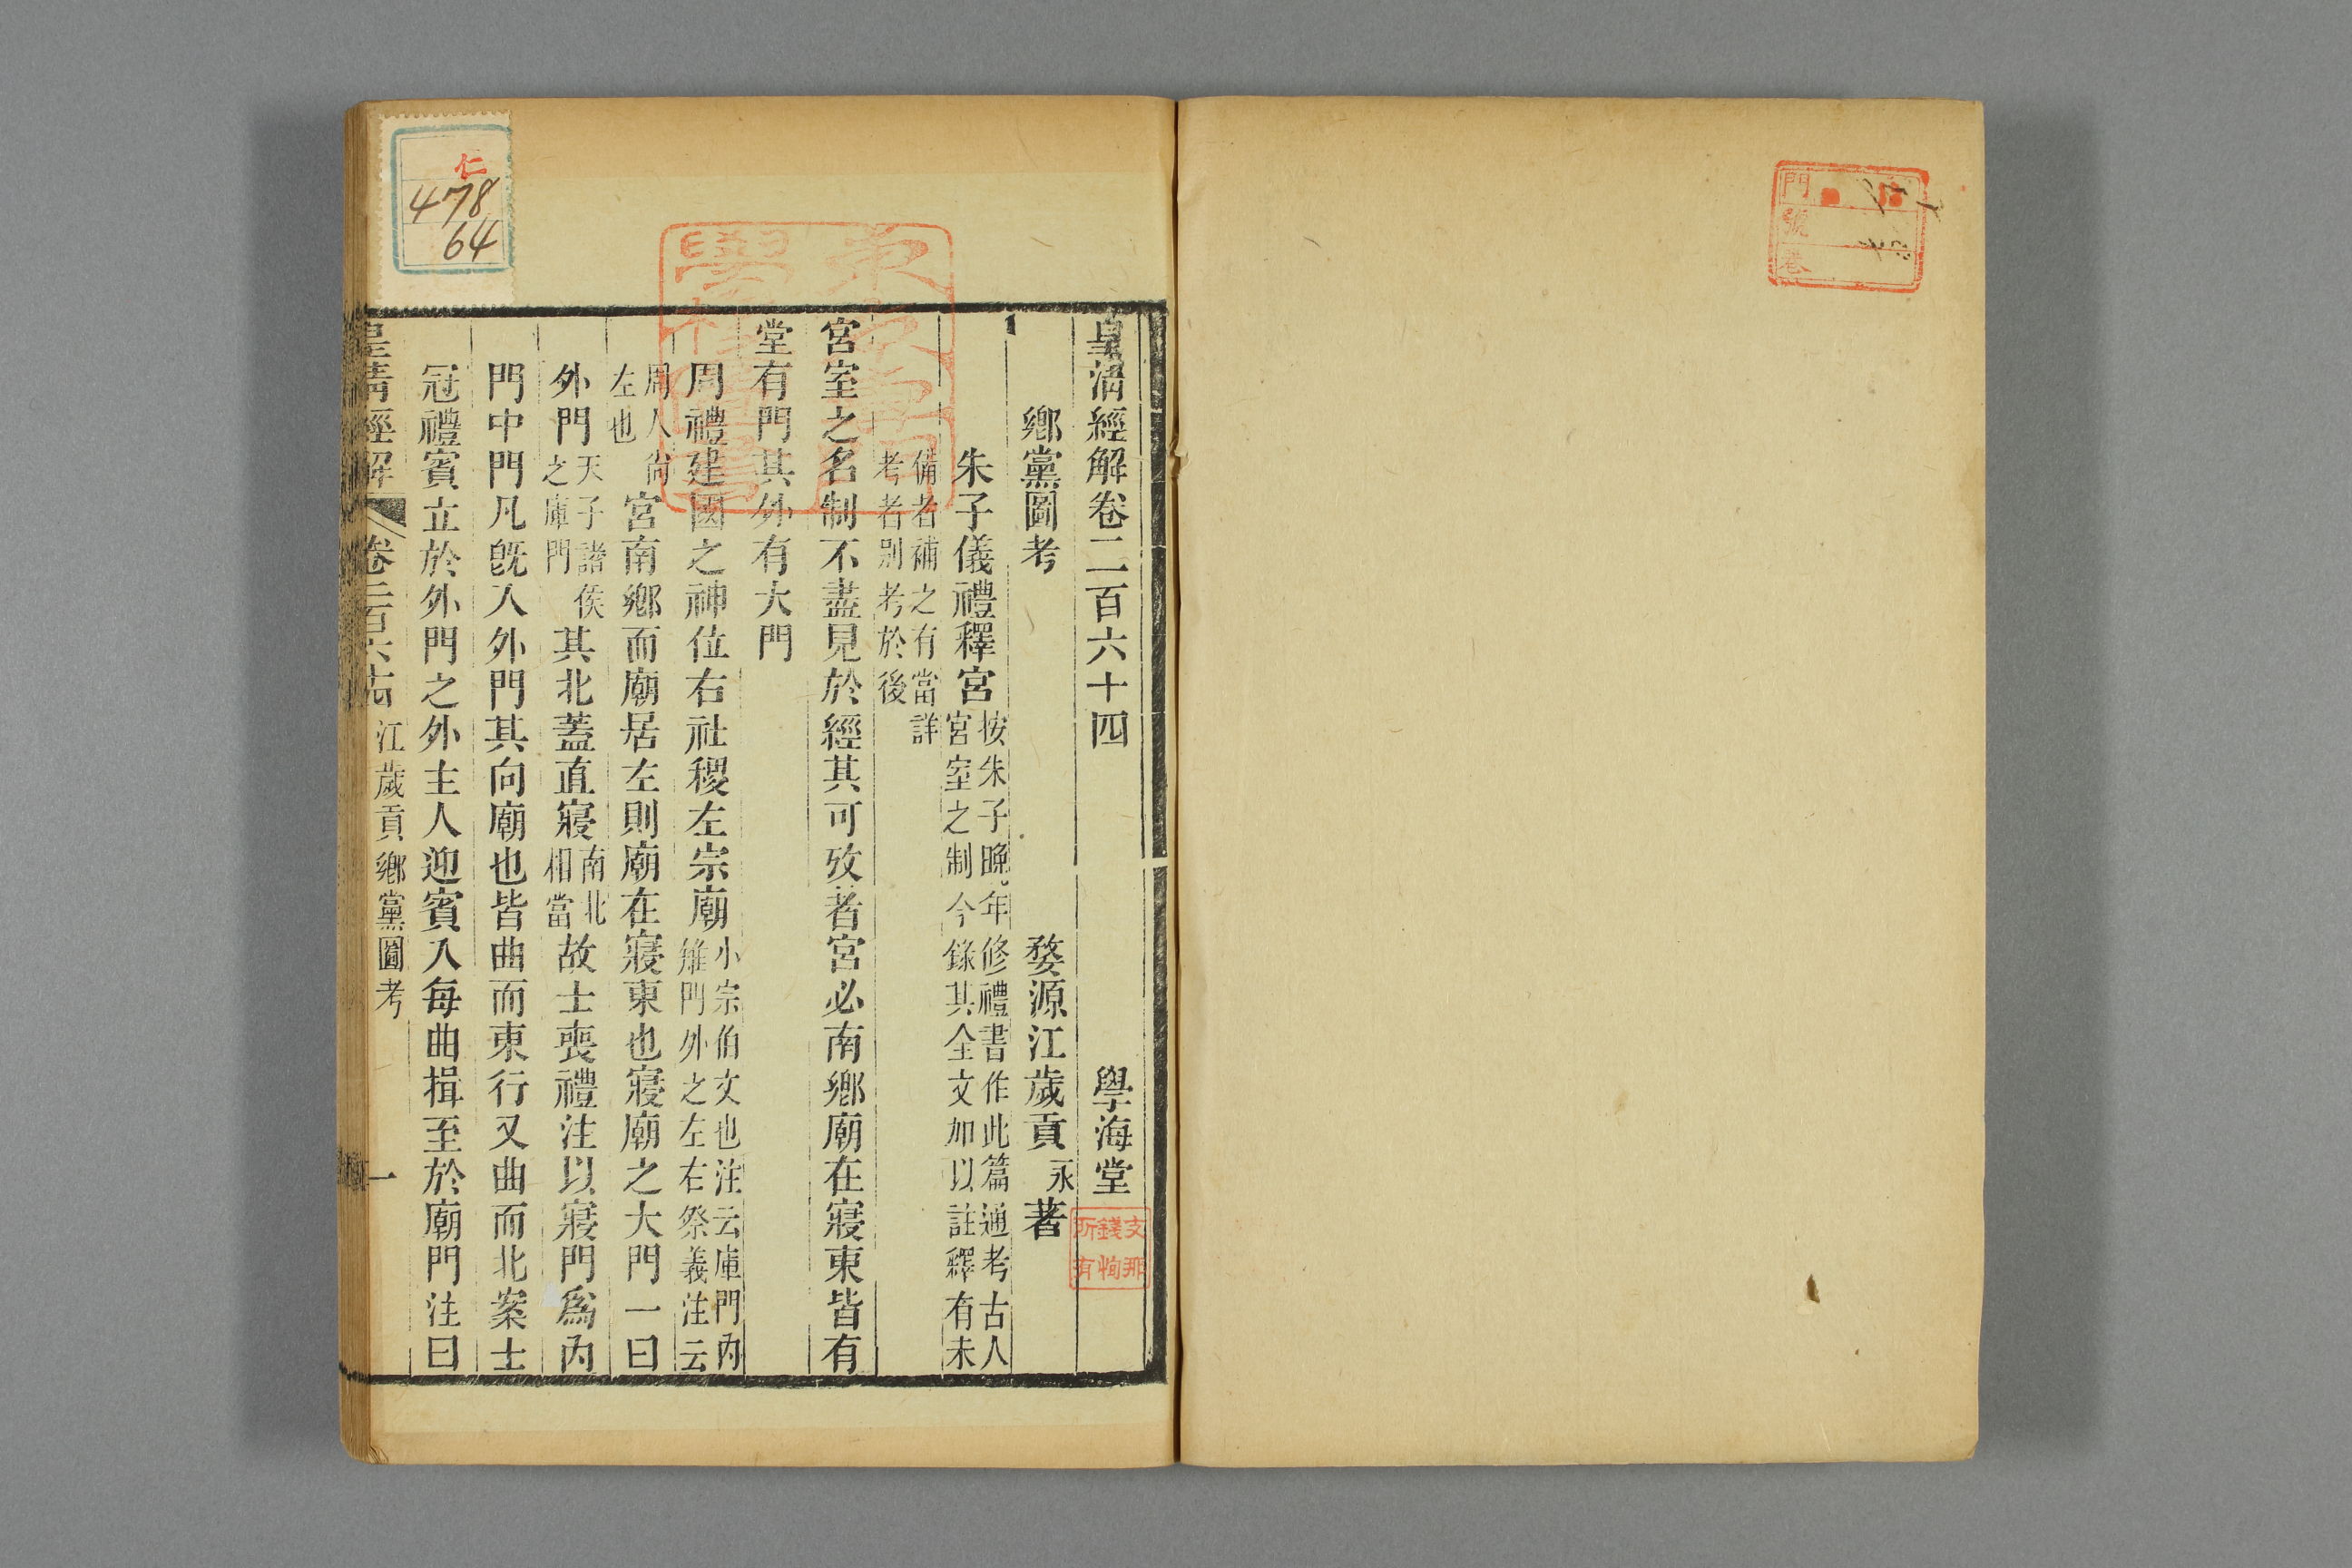 門
號
卷
皇清經解卷二百六十四 學海堂
支那
錢恂
所有
鄉黨圖考 婺源江歲貢永著
朱子儀禮釋宮按朱子晚年修禮書作此篇通考古人
宮室之制今錄其全文加以註釋有未
備者補之有當詳
考者別考於後
宮室之名制不盡見於經其可攷者宮必南鄉廟在寢東皆有
堂有門其外有大門
周禮建國之神位右社稷左宗廟小宗伯文也注云庫門內
雉門外之左右祭義注云
周人尚
左也宮南鄉而廟居左則廟在寢東也寢廟之大門一曰
外門天子諸侯
之庫門其北蓋直寢南北
相當故士喪禮注以寢門爲內
門中門凡旣入外門其向廟也皆曲而東行又曲而北案士
冠禮賓立於外門之外主人迎賓入每曲揖至於廟門注曰
皇清經解 卷二百六十四 江歲貢鄉黨圖考 一
仁
478
64